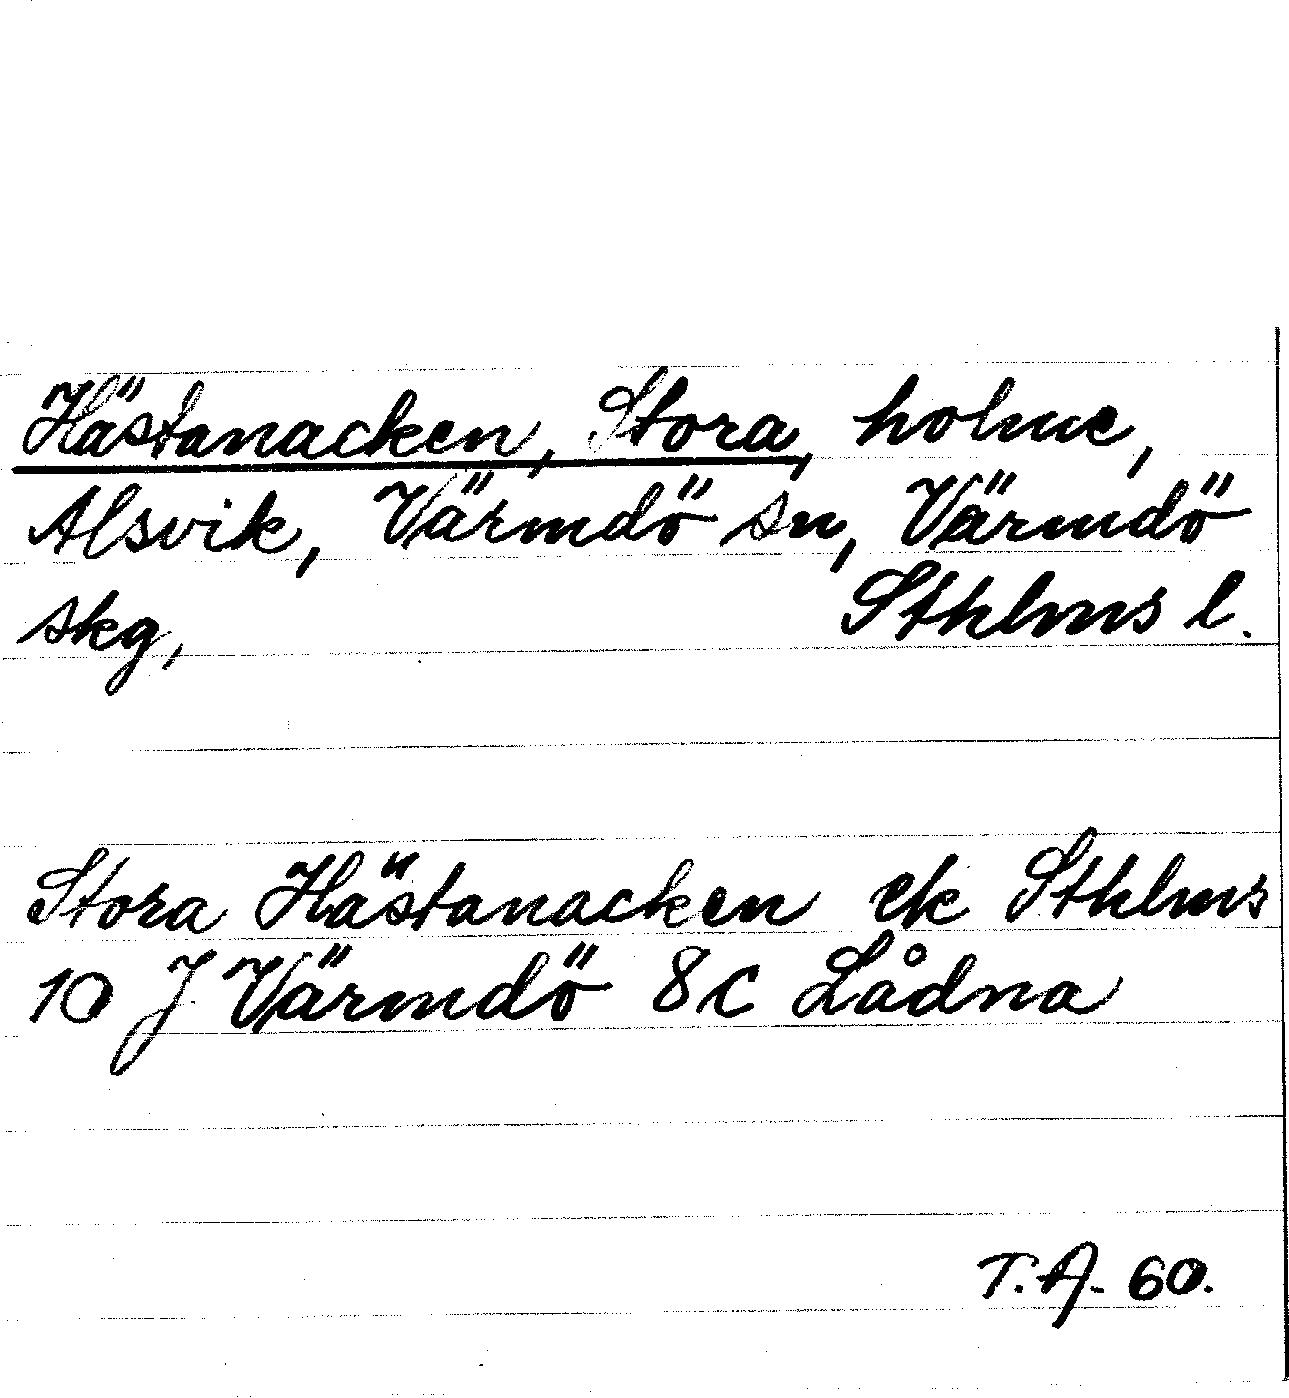 Hästanacken, Stora, holme,
Alsvik, Värmdö sn, Värmdö
skg, Sthlms l.
Stora Hästanacken ek Sthlms
10 J Värmdö 8 c Lådna
T.A. 60.